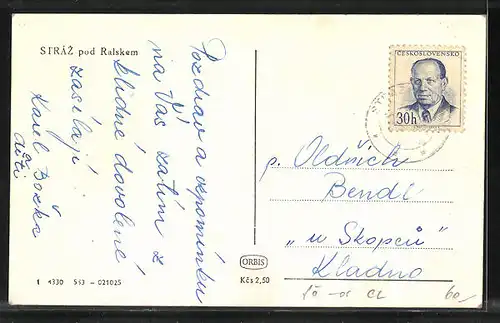 STRÁŽ pod Ralskem
Pozdrav a vzpomínku
na Vás zatím z
klidné dovolené
zasílají
Karel Božka
děti
ČESKOSLOVENSKO
30h
p. Oldřich
Bendl
„u Skopců"
Kladno
ORBIS
Kčs 2,50
1 4330 513 — 021025
60